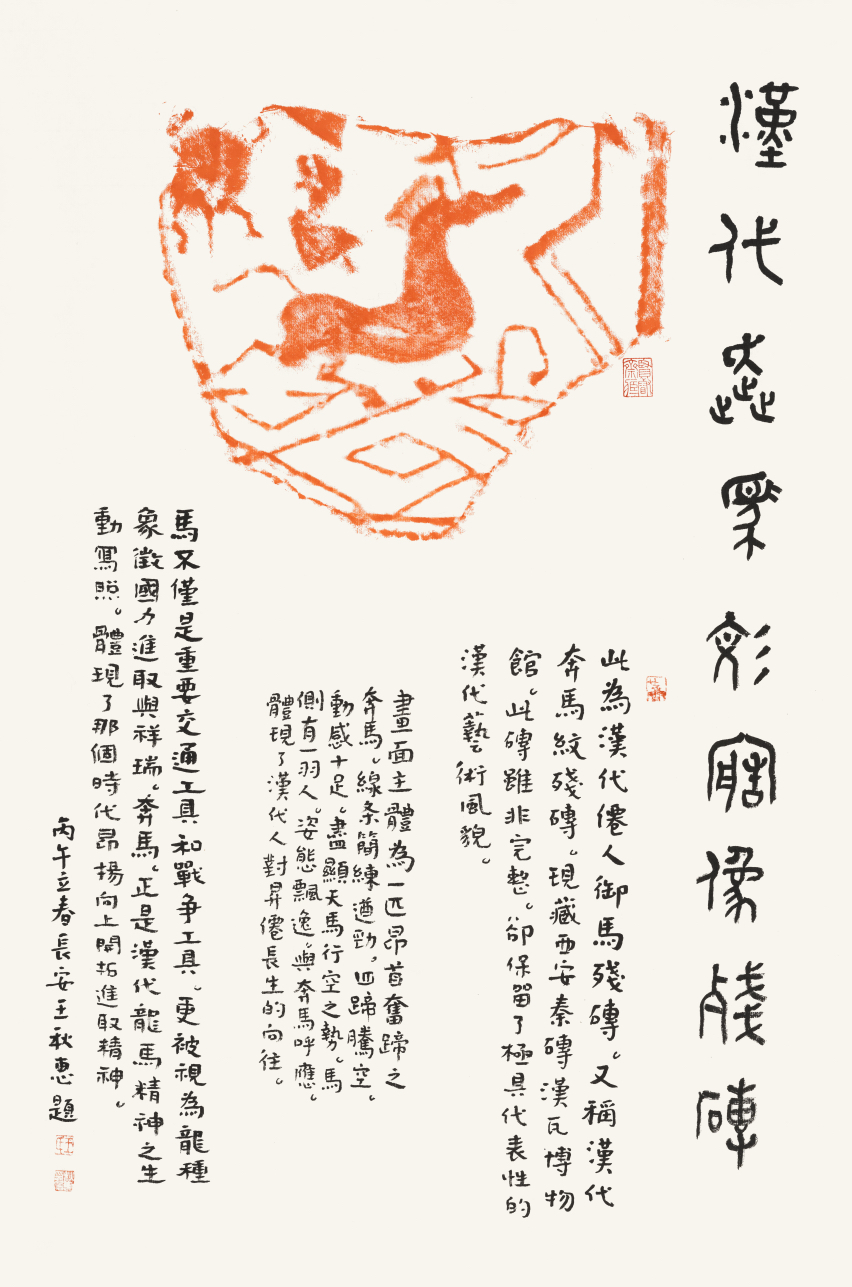 漢代奔馬彣像殘磚
此為漢代僊人御馬殘磚。又稱漢代
奔馬紋殘磚。現藏西安秦磚漢瓦博物
館。此磚雖非完整。卻保留了極具代表性的
漢代藝術風貌。
畫面主體為一匹昂首奮蹄之
奔馬。線条簡練遒勁，四蹄騰空。
動感十足。盡顯天馬行空之勢。馬
側有一羽人。姿態飄逸。與奔馬呼應。
體現了漢代人對昇僊長生的向往。
馬不僅是重要交通工具和戰争工具。更被視為龍種
象徵國力進取與祥瑞。奔馬。正是漢代龍馬精神之生
動寫照。體現了那個時代昂揚向上開拓進取精神。
丙午立春長安王秋惠題